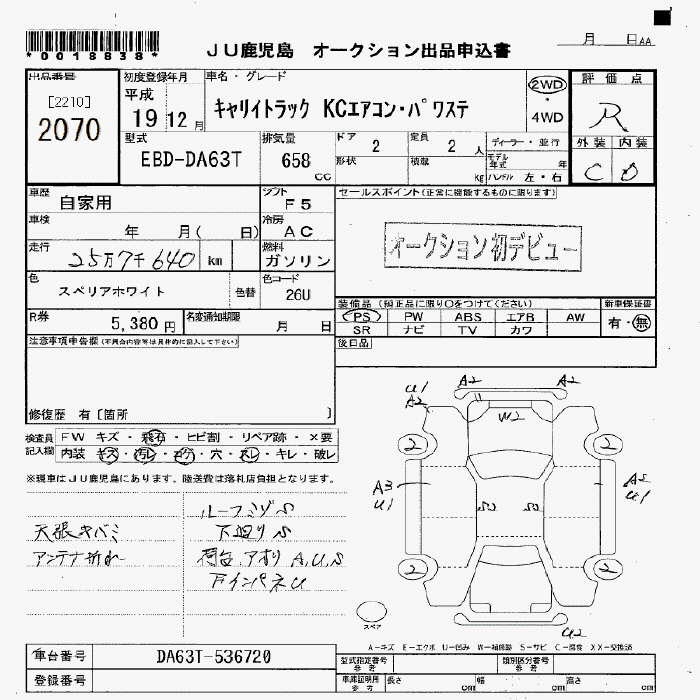 *0018838*
JU鹿児島 オークション出品申込書
月 日AA
出品番号
[2210]
2070
初度登録年月
平成
19 12月
車名・グレード
キャリイトラック KCエアコン・パワステ
2WD
・
4WD
評価点
R
外装 内装
C D
型式
EBD-DA63T
排気量
658
cc
ドア 2
形状
定員 2 人
積載 kg
ディーラー・並行
モデル年式 年
ハンドル 左・右
車歴 自家用
シフト F5
車検 年 月( 日)
冷房 AC
走行 25万7千640 km
燃料 ガソリン
色 スペリアホワイト
色替
色コード 26U
R券 5,380円
名変通知期限 月 日
セールスポイント(正常に機能するものに限ります)
オークション初デビュー
装備品(純正品に限り○をつけてください)
新車保証書
PS PW ABS エアB AW
SR ナビ TV カワ
有・無
後日品
注意事項申告欄(不具合内容等は具体的に記入して下さい)
修復歴 有[箇所 ]
検査員記入欄
FW キズ・飛石・ヒビ割・リペア跡・×要
内装 キズ・汚レ・コゲ・穴・スレ・キレ・破レ
※現車はJU鹿児島にあります。陸送費は落札店負担となります。
天張キバミ
アンテナ折れ
ルーフミゾS
下廻りS
荷台、アオリ A,U,S
下インパネU
A2 A2
U1
A2
W2
2 2
A3
U1
S S
A2
U1
2 2
U2
スペア
A-キズ E-エクボ U-凹み W-補修跡 S-サビ C-腐食 XX-交換済
車台番号 DA63T-536720
登録番号
型式指定番号 参考
類別区分番号 参考
車庫証明用 参考
長さ cm 幅 cm 高さ cm